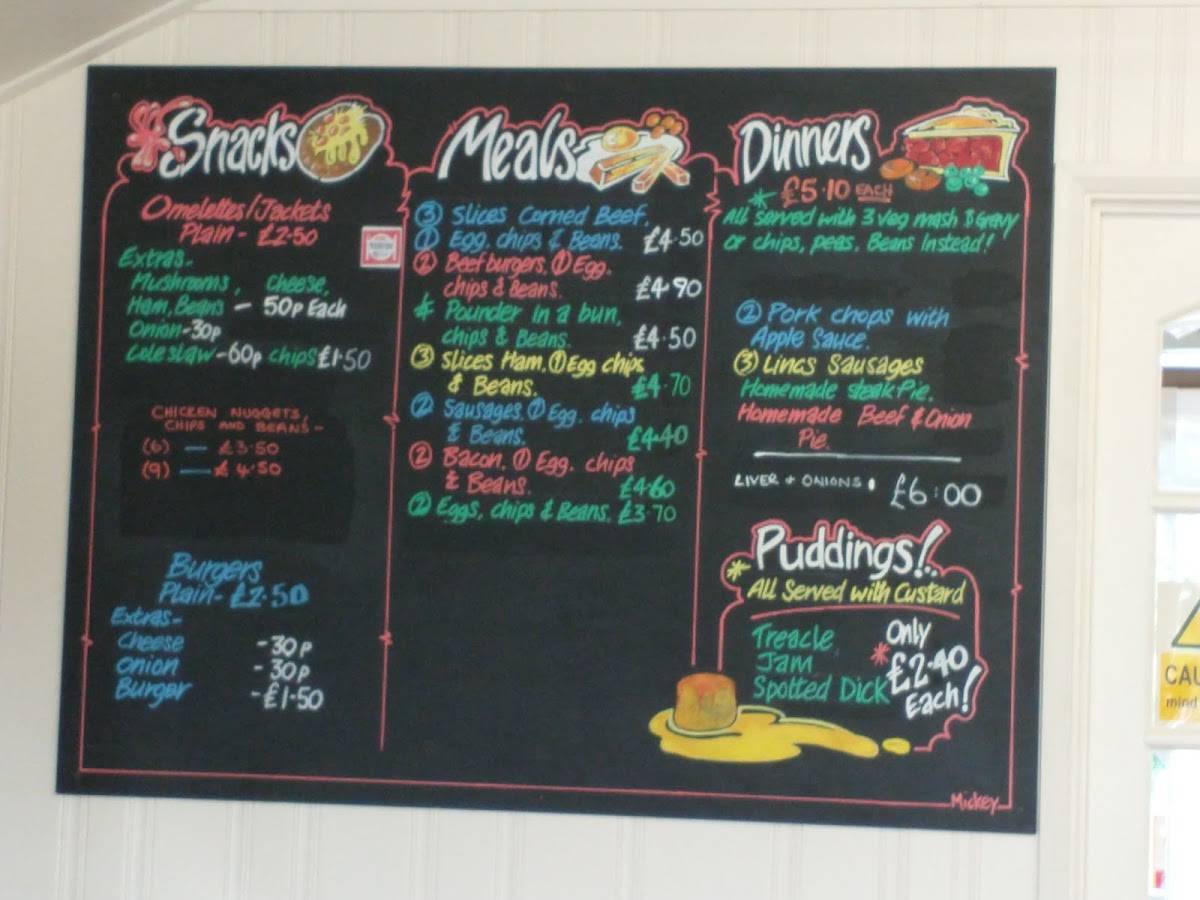 Snacks
Omelettes/Jackets
Plain - £2·50
Extras-
Mushrooms, cheese,
Ham, Beans - 50p Each
Onion-30p
Coleslaw-60p chips £1·50
CHICKEN NUGGETS,
CHIPS AND BEANS-
(6) — £3·50
(9) — £4·50
Burgers
Plain- £2·50
Extras-
Cheese -30p
Onion -30p
Burger -£1·50
Meals
③ Slices Corned Beef,
① Egg. chips & Beans. £4·50
② Beefburgers, ① Egg.
chips & Beans. £4·90
¼ Pounder in a bun,
chips & Beans. £4·50
③ Slices Ham, ① Egg chips
& Beans. £4·70
② Sausages, ① Egg. chips
& Beans. £4·40
② Bacon, ① Egg. chips
& Beans. £4·60
② Eggs, chips & Beans. £3·70
Dinners
* £5·10 EACH
All served with 3 veg mash & Gravy
or chips, peas, Beans instead!
② Pork chops with
Apple Sauce.
③ Lincs Sausages
Homemade steak Pie.
Homemade Beef & Onion
Pie.
LIVER + ONIONS · £6:00
Puddings!
* All Served with Custard
Treacle
Jam
Spotted Dick
Only
* £2·40
Each!
Mickey
CAU
mind